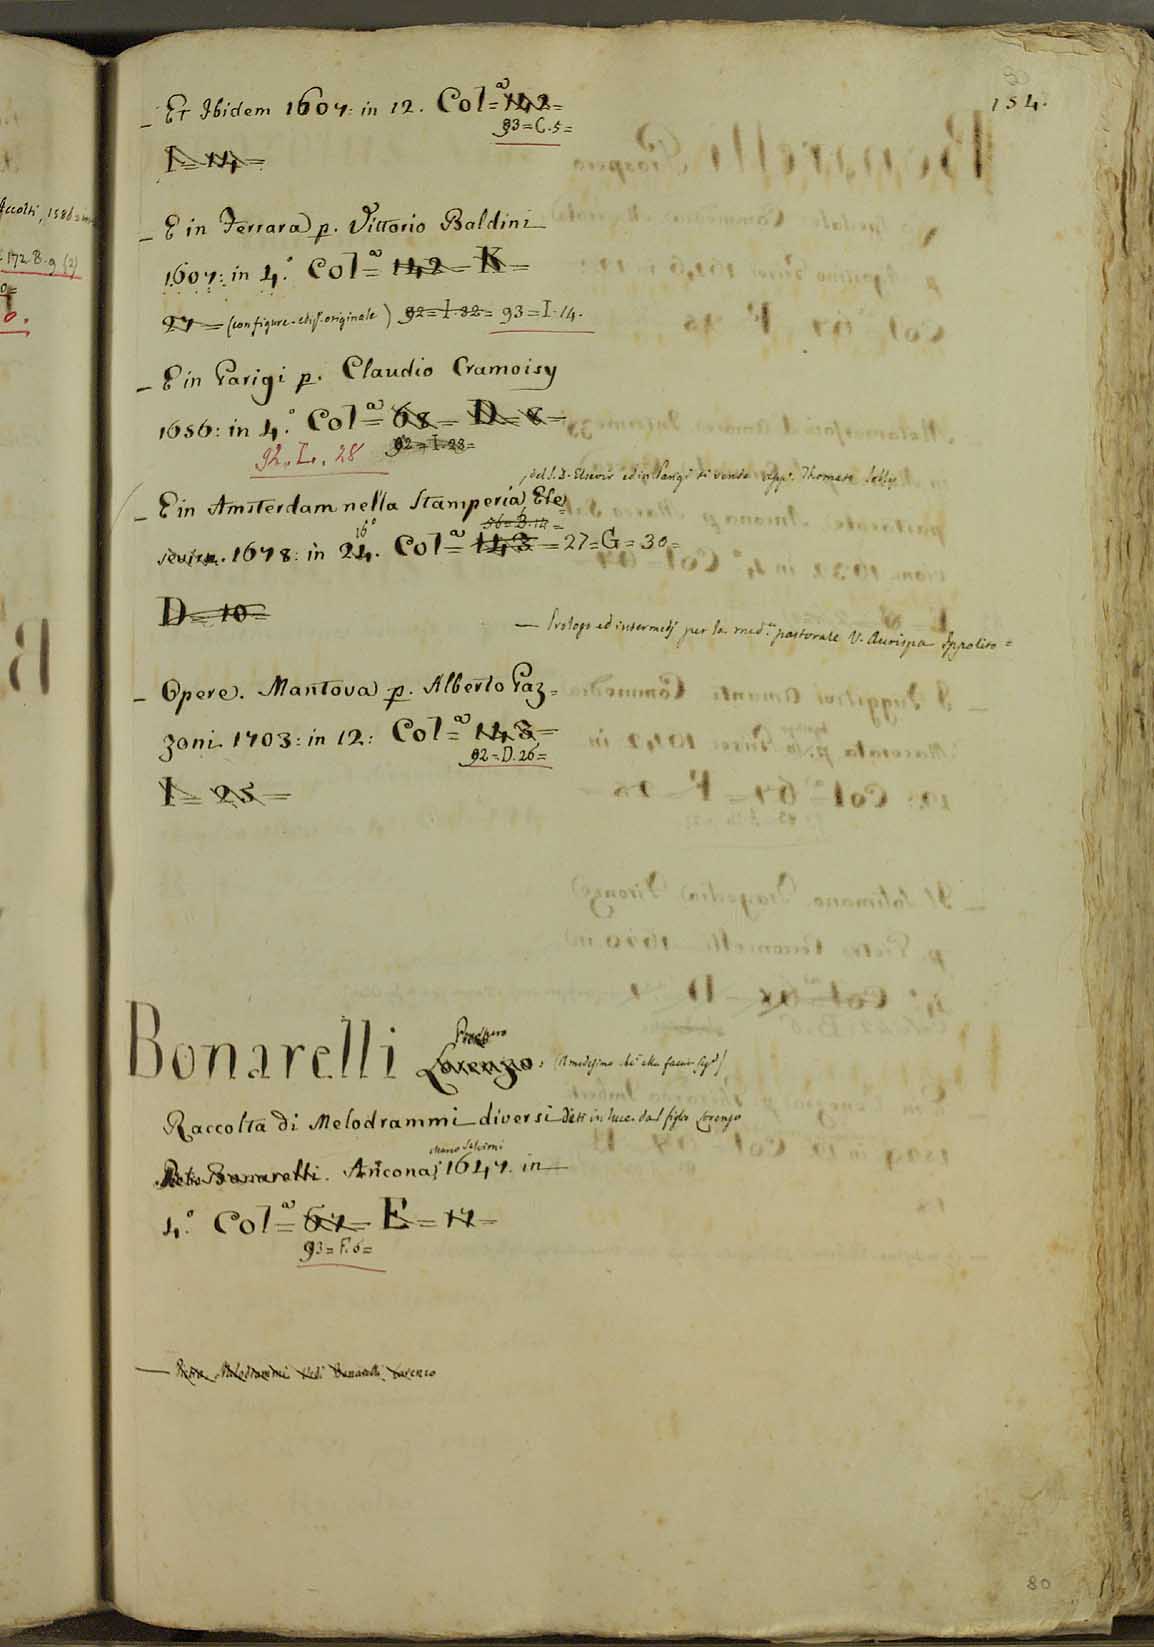 154.
– Et Ibidem 1607: in 12. Col.ª = 142 =
93 = C. 5 =
I = 14 =
– E in Ferrara p. Vittorio Baldini
1607: in 4.º Col.ª = 142 = K =
27 = (con figure ediz. originale) 92 = I. 32 = 93 = I. 14.
– E in Parigi p. Claudio Cramoisy
1656: in 4.º Col.ª = 68 = D = 8 =
92. I. 28 92 = I. 28 =
del S. D. Elsevir ed in Parigi si vende app.º Thomaso Jolly
– E in Amsterdam nella Stamperia Else
36 = B. 12 =
16º
1678: in 24. Col.ª = 143 = 27 = G = 30 =
D = 10
– Prologo ed intermedj per la med.ª pastorale V. Aurispa Ippolito =
– Opere. Mantova p. Alberto Paz=
zoni 1703: in 12: Col.ª = 143 =
92 = D. 26 =
I = 25 =
Bonarelli Lorenzo:
Prospero
Raccolta di Melodrammi diversi dati in luce dal figlio Lorenzo
Marco Salvioni
Bonarelli. Ancona, 1647. in
4.º Col.ª = 67 = E = 17 =
93 = F. 6 =
– Melodrammi Vedi Bonarelli Lorenzo
80